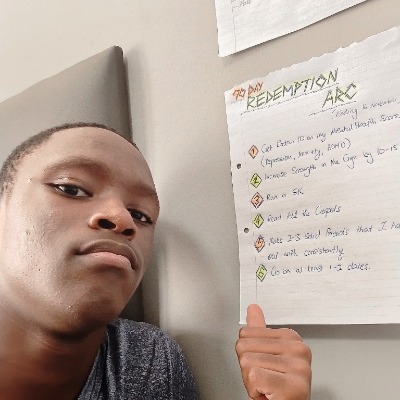 90 DAY
REDEMPTION
ARC
1 Get Below 10 on my Mental Health Scores
(Depression, Anxiety, ADHD)
2 Increase Strength in the Gym by 10-15
3 Run a 5K
4 Read All the
5 Make 2-3 Solid Friends that I
out with consistently
6 Go on at least 1-2 dates.